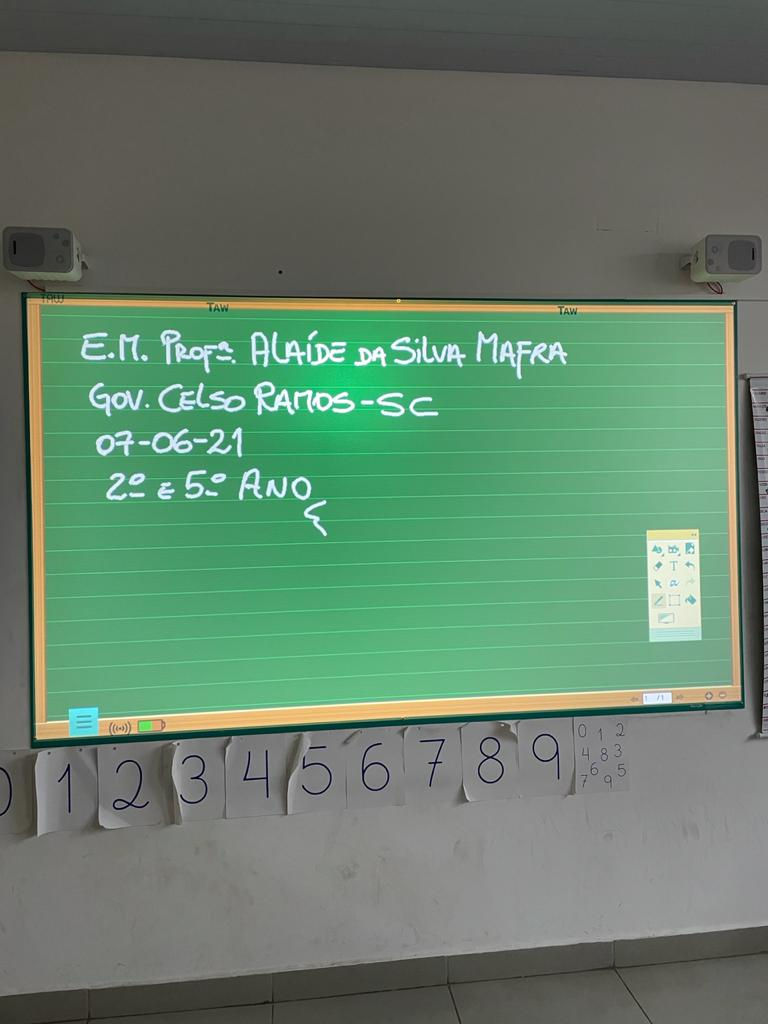 TAW TAW TAW
E.M. PROFª. ALAÍDE DA SILVA MAFRA
GOV. CELSO RAMOS-SC
07-06-21
2º E 5º ANO
1 /1
0 1 2 3 4 5 6 7 8 9
0 1 2
4 8 3
6 5
7 9